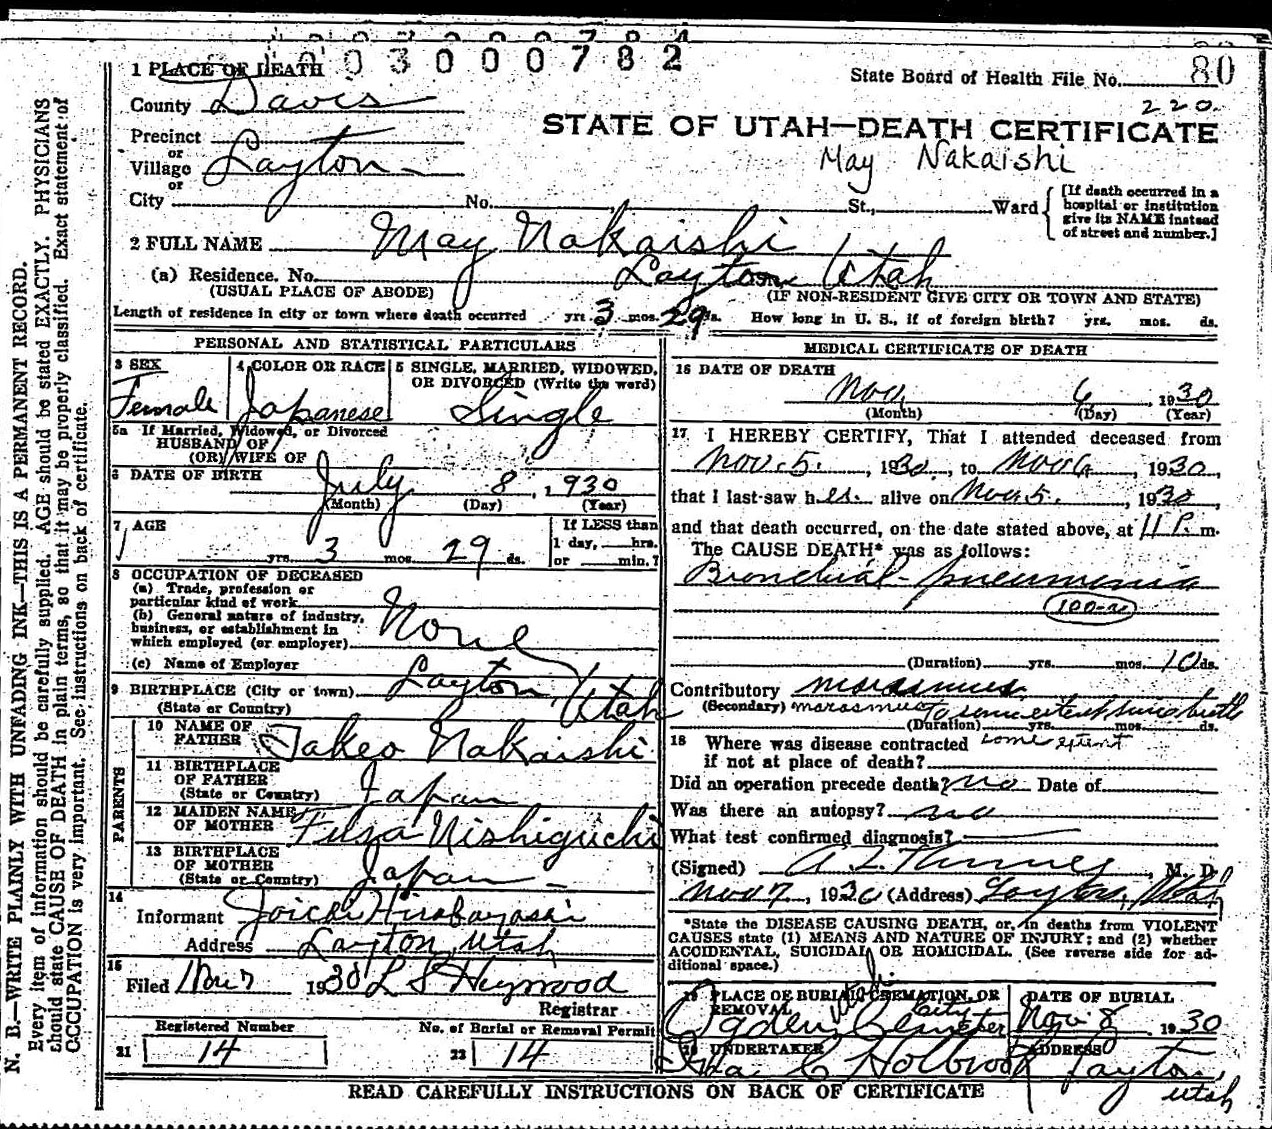 03000782
1 PLACE OF DEATH
State Board of Health File No. 80
County Davis
220.
STATE OF UTAH—DEATH CERTIFICATE
May Nakaishi
Precinct
or
Village Layton
or
City No. St., Ward
[If death occurred in a
hospital or institution
give its NAME instead
of street and number.]
2 FULL NAME May Nakaishi
(a) Residence. No. Layton Utah
(USUAL PLACE OF ABODE) (IF NON-RESIDENT GIVE CITY OR TOWN AND STATE)
Length of residence in city or town where death occurred yrs 3 mos. 29 ds. How long in U. S., if of foreign birth? yrs. mos. ds.
PERSONAL AND STATISTICAL PARTICULARS
3 SEX
Female
4 COLOR OR RACE
Japanese
5 SINGLE, MARRIED, WIDOWED,
OR DIVORCED (Write the word)
Single
5a If Married, Widowed, or Divorced
HUSBAND OF
(OR) WIFE OF
6 DATE OF BIRTH
July 8, 1930
(Month) (Day) (Year)
7 AGE
yrs. 3 mos. 29 ds.
If LESS than
1 day, hrs.
or min.?
8 OCCUPATION OF DECEASED
(a) Trade, profession or
particular kind of work
(b) General nature of industry,
business, or establishment in
which employed (or employer)
None
(c) Name of Employer
9 BIRTHPLACE (City or town) Layton
(State or Country) Utah
PARENTS
10 NAME OF
FATHER Takeo Nakaishi
11 BIRTHPLACE
OF FATHER
(State or Country) Japan
12 MAIDEN NAME
OF MOTHER Fusa Nishiguchi
13 BIRTHPLACE
OF MOTHER
(State or Country) Japan
14
Informant Joichi Hirabayashi
Address Layton, Utah
15
Filed Nov 7 1930 L S Heywood
Registrar
Registered Number
21 14
No. of Burial or Removal Permit
22 14
MEDICAL CERTIFICATE OF DEATH
16 DATE OF DEATH
Nov. 6, 1930
(Month) (Day) (Year)
17 I HEREBY CERTIFY, That I attended deceased from
Nov. 5., 1930, to Nov 6, 1930,
that I last saw her alive on Nov. 5., 1930
and that death occurred, on the date stated above, at 11 P. m.
The CAUSE DEATH* was as follows:
Bronchial-pneumonia
100-a
(Duration) yrs. mos. 10 ds.
Contributory marasmus
(Secondary) marasmus to some extent since birth
(Duration) yrs. mos. ds.
18 Where was disease contracted some extent
if not at place of death?
Did an operation precede death? no Date of
Was there an autopsy? no
What test confirmed diagnosis?
(Signed) M. D.
Nov 7, 1930 (Address) Layton, Utah
*State the DISEASE CAUSING DEATH, or, in deaths from VIOLENT
CAUSES state (1) MEANS AND NATURE OF INJURY; and (2) whether
ACCIDENTAL, SUICIDAL OR HOMICIDAL. (See reverse side for ad-
ditional space.)
19 PLACE OF BURIAL, CREMATION, OR
REMOVAL
Ogden Utah City Cemetery
DATE OF BURIAL
Nov 8 1930
20 UNDERTAKER
Ira C Holbrook
ADDRESS
Layton,
Utah
READ CAREFULLY INSTRUCTIONS ON BACK OF CERTIFICATE
N. B.—WRITE PLAINLY WITH UNFADING INK—THIS IS A PERMANENT RECORD.
Every item of information should be carefully supplied. AGE should be stated EXACTLY. PHYSICIANS
should state CAUSE OF DEATH in plain terms, so that it may be properly classified. Exact statement of
OCCUPATION is very important. See instructions on back of certificate.